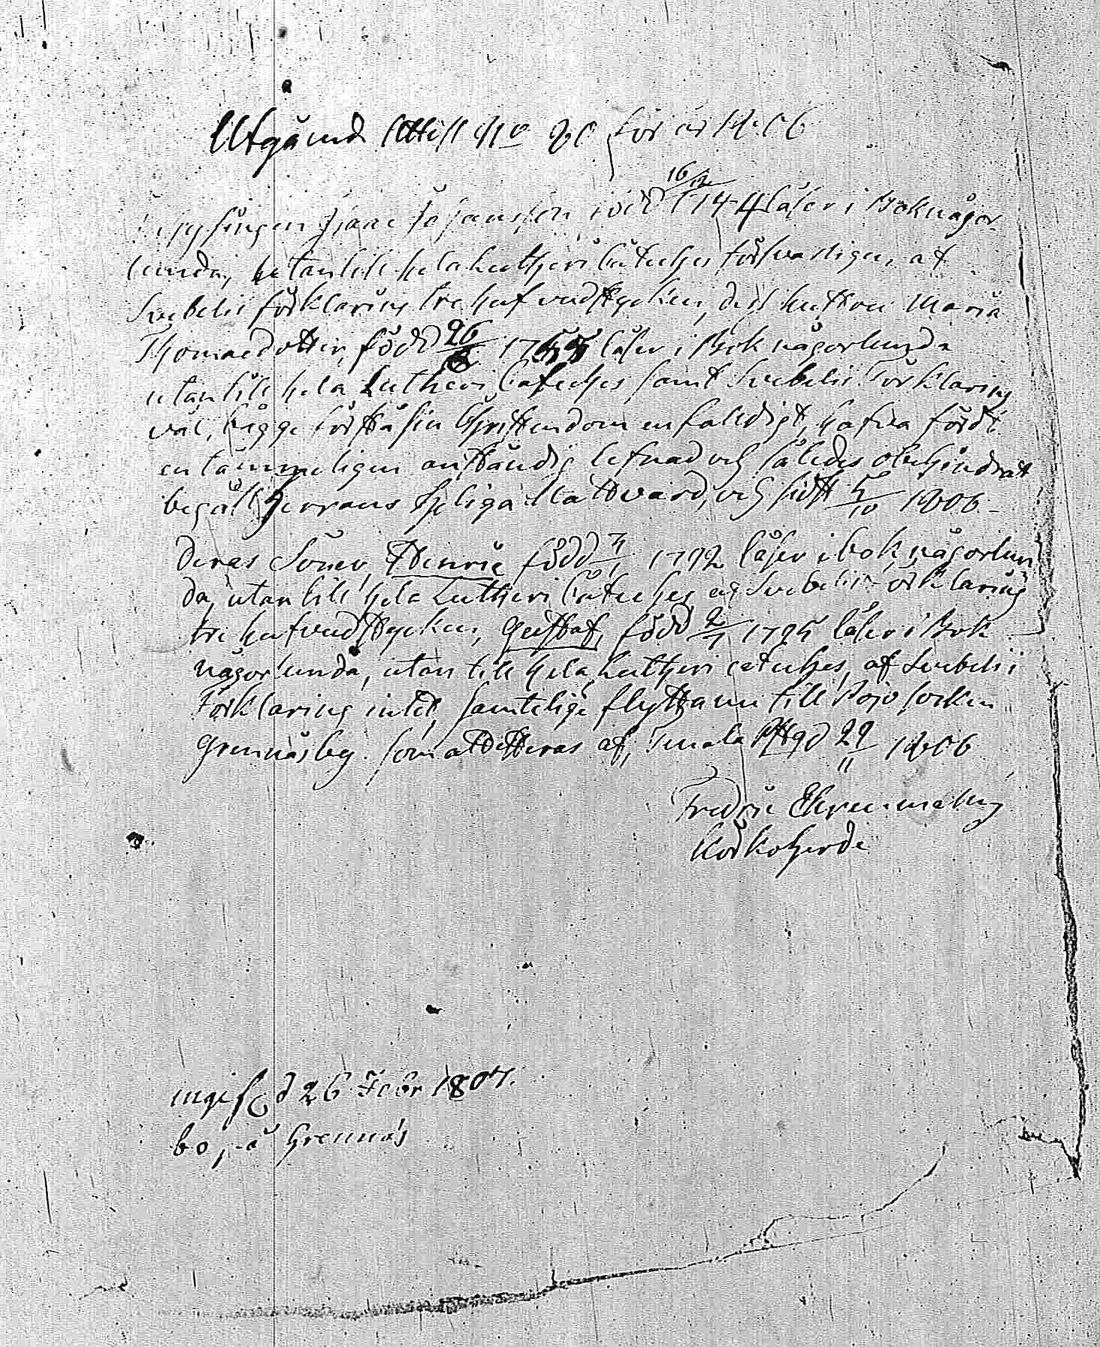 Utgående Attest No 90 för år 1806
Isaac Johansson född 16/12 1744 läser i Bok någor-
lunda, utantill hela Lutheri Cateches försvarligen, af
Svebelii förklaring tre hufvudstycken, dess hustru Maria
Thomaedotter, född 26 1755 läser i Bok någorlunda
utantill hela Lutheri Cateches samt Svebelii Förklaring
väl, bägge förstå sin Christendom enfaldigt, hafva fördt
en tämmeligen anständig lefnad och således obehindrat
begått Herrans Heliga Nattvard, och sidst 5/10 1806 -
deras Söner, Henric född 1792 läser i bok någorlun
da, utantill hela Lutheri Cateches af Svebelii förklaring
tre hufvudstycken, Gustaf, född 2/1 1795 läser i Bok
någorlunda, utantill hela Lutheri cateches, af Svebelii
Förklaring intet, samtelige flytta nu till Pojo Socken
Grennäs by. som attesteras af, Tenala Pstgd 29/11 1806
Fredric Ehrnmalm
Kyrkoherde
ingifc d 26 Febr 1807.
bo, å Grennäs